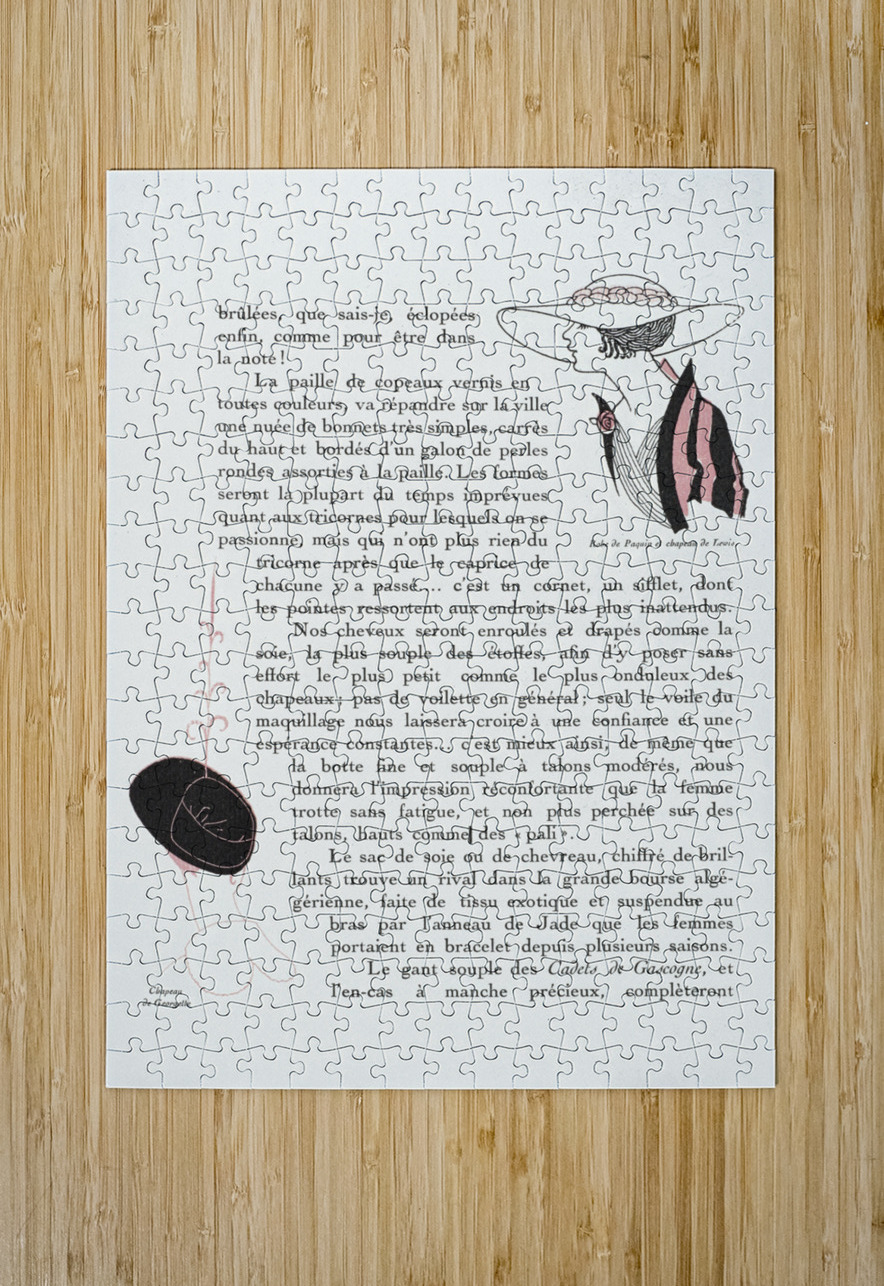 brûlées, que sais-je, éclopées
enfin, comme pour être dans
la note !
La paille de copeaux vernis en
toutes couleurs, va répandre sur la ville
une nuée de bonnets très simples, carrés
du haut et bordés d'un galon de perles
rondes assorties à la paille. Les formes
seront la plupart du temps imprévues
quant aux tricornes pour lesquels on se
passionne, mais qui n'ont plus rien du
tricorne après que le caprice de
chacune y a passé... c'est un cornet, un sifflet, dont
les pointes ressortent aux endroits les plus inattendus.
Nos cheveux seront enroulés et drapés comme la
soie, la plus souple des étoffes, afin d'y poser sans
effort le plus petit comme le plus onduleux des
chapeaux ; pas de voilette en général ; seul le voile du
maquillage nous laissera croire à une confiance et une
espérance constantes... c'est mieux ainsi, de même que
la botte fine et souple à talons modérés, nous
donnera l'impression réconfortante que la femme
trotte sans fatigue, et non plus perchée sur des
talons, hauts comme des « pali ».
Le sac de soie ou de chevreau, chiffré de bril-
lants trouve un rival dans la grande bourse algé-
gérienne, faite de tissu exotique et suspendue au
bras par l'anneau de Jade que les femmes
portaient en bracelet depuis plusieurs saisons.
Le gant souple des Cadets de Gascogne, et
l'en-cas à manche précieux, complèteront
Robe de Paquin et chapeau de Lewis
Chapeau
de Georgette